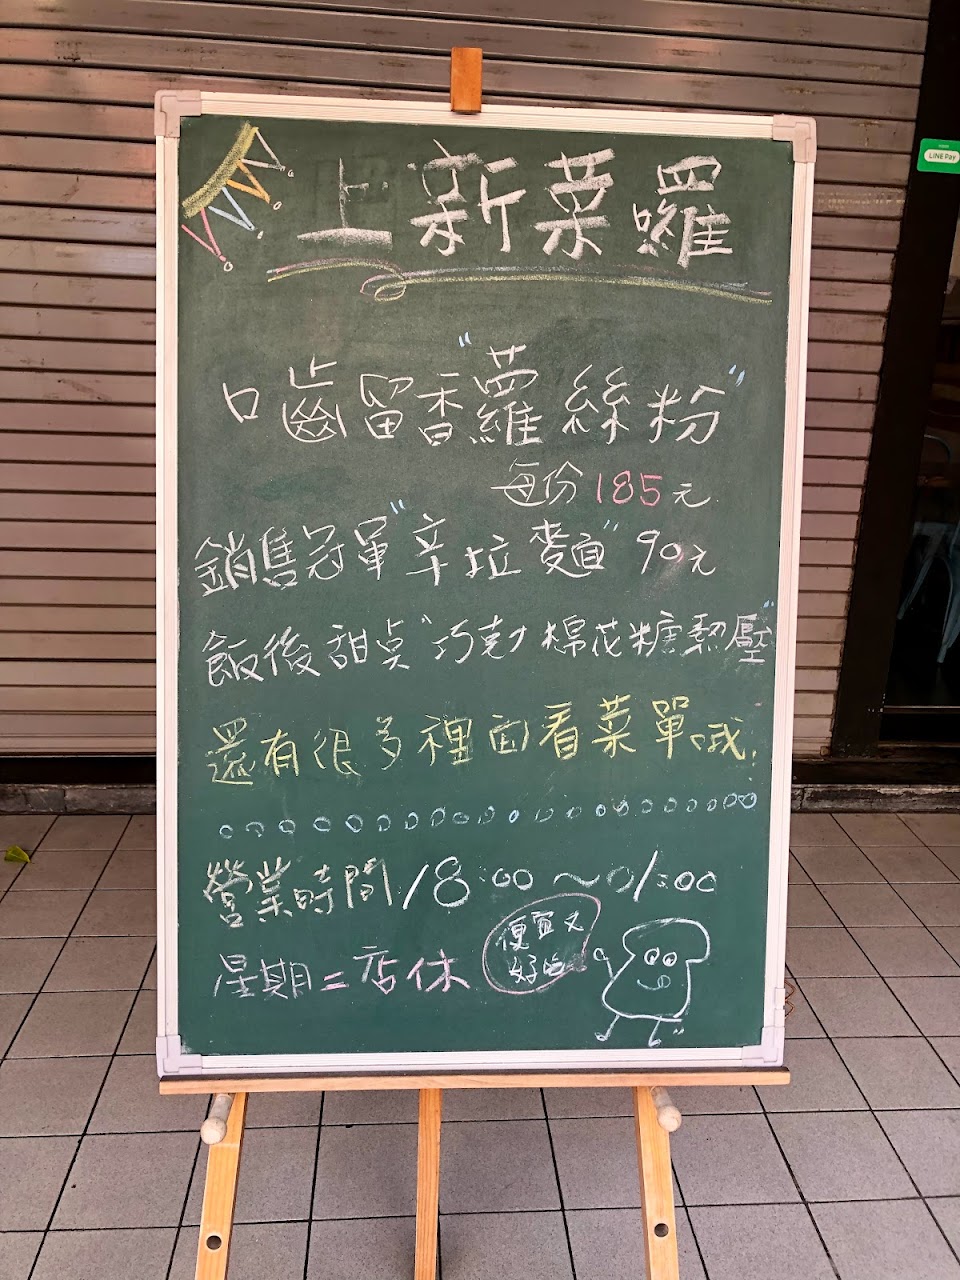 上新菜囉
口齒留香"蘿絲粉"
每份185元
銷售冠軍"辛拉麵"90元
飯後甜點"巧克力棉花糖熱壓"
還有很多裡面看菜單哦!
營業時間18:00~01:00
星期二店休
便宜又
好吃
LINE Pay